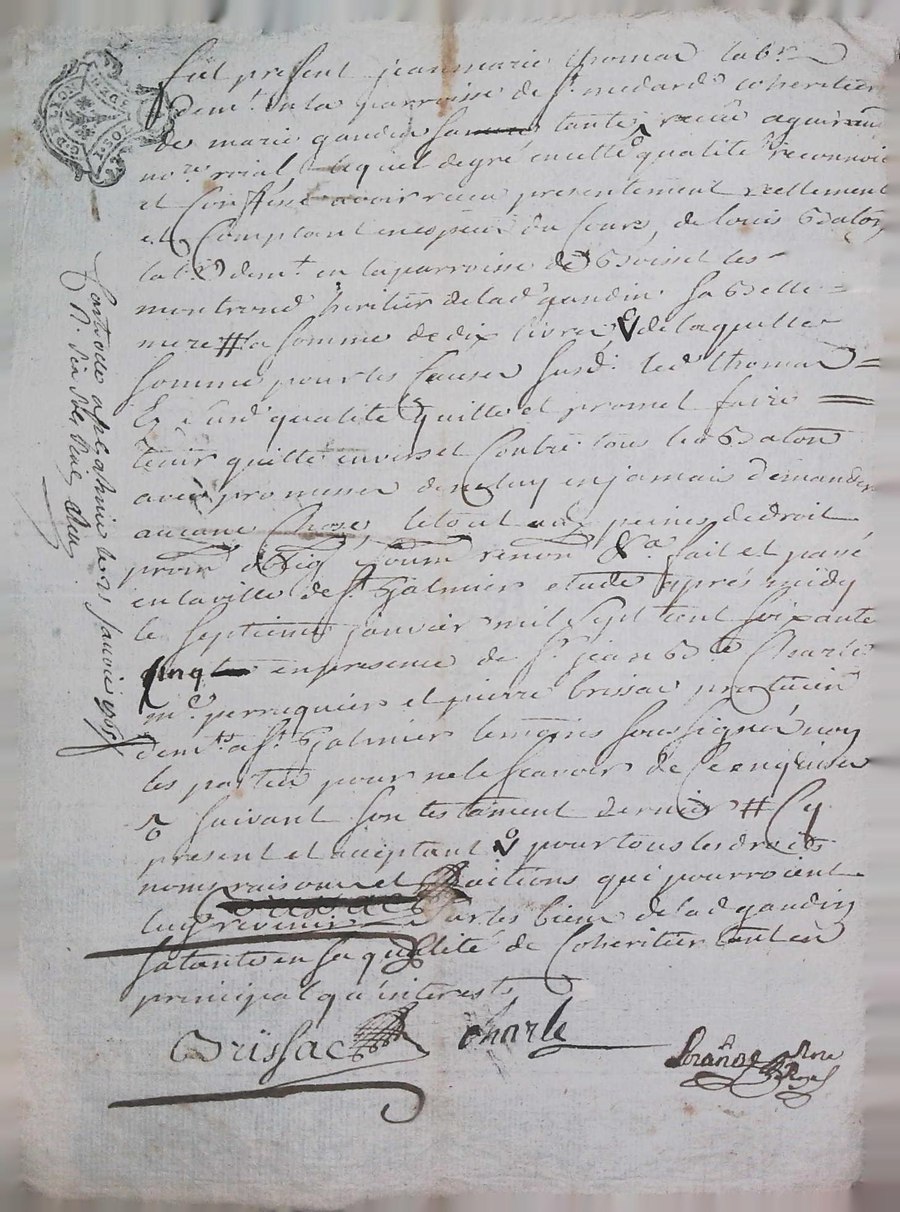 G. DE LYON
Fut present jeanmarie thomas lab.r
dem.t en la parroisse de S.t medard coheritier
de marie gaudin sa tante, receu
no.re roial lequel degré en cette qualité reconnoit
et Confesse avoir receu presentement reellement
et Comptant en espece du Cours, de louis Baton
lab.r dem.t en la parroisse de Boisset les
montrond heritier de lad. gaudin sa belle =
mere # la somme de dix livres de laquelle
somme pour les Causes susd. led. thomas =
susd. qualité quitte et promet faire =
tenir quitte envers et Contre tous led. Baton
avec promesse de ne luy en jamais demander
aucune Chose, le tout aux peines de droit
prom. oblig. soum. renon. &.a fait et passé
en la ville de S.t Galmier etude apres midy
le septieme janvier mil sept cent soixante
cinq en presence de S.r jean B.te Charle
m.e perruquier et pierre brissac praticien
dem.ts a S.t Galmier temoins soussignés non
les parties pour ne le scavoir de Ce enquises
suivant son testament dernier # Cy
present et acceptant pour tous les droits
noms raisons et actions qui pourroient
luy revenir sur les biens de lad. gaudin
sa tante en sa qualité de Coheritier tant en
principal qu'interests
Brissac
Charle
Not.re Royal
Controllé a S.t galmier le 21 janvier 1765
R. six s.